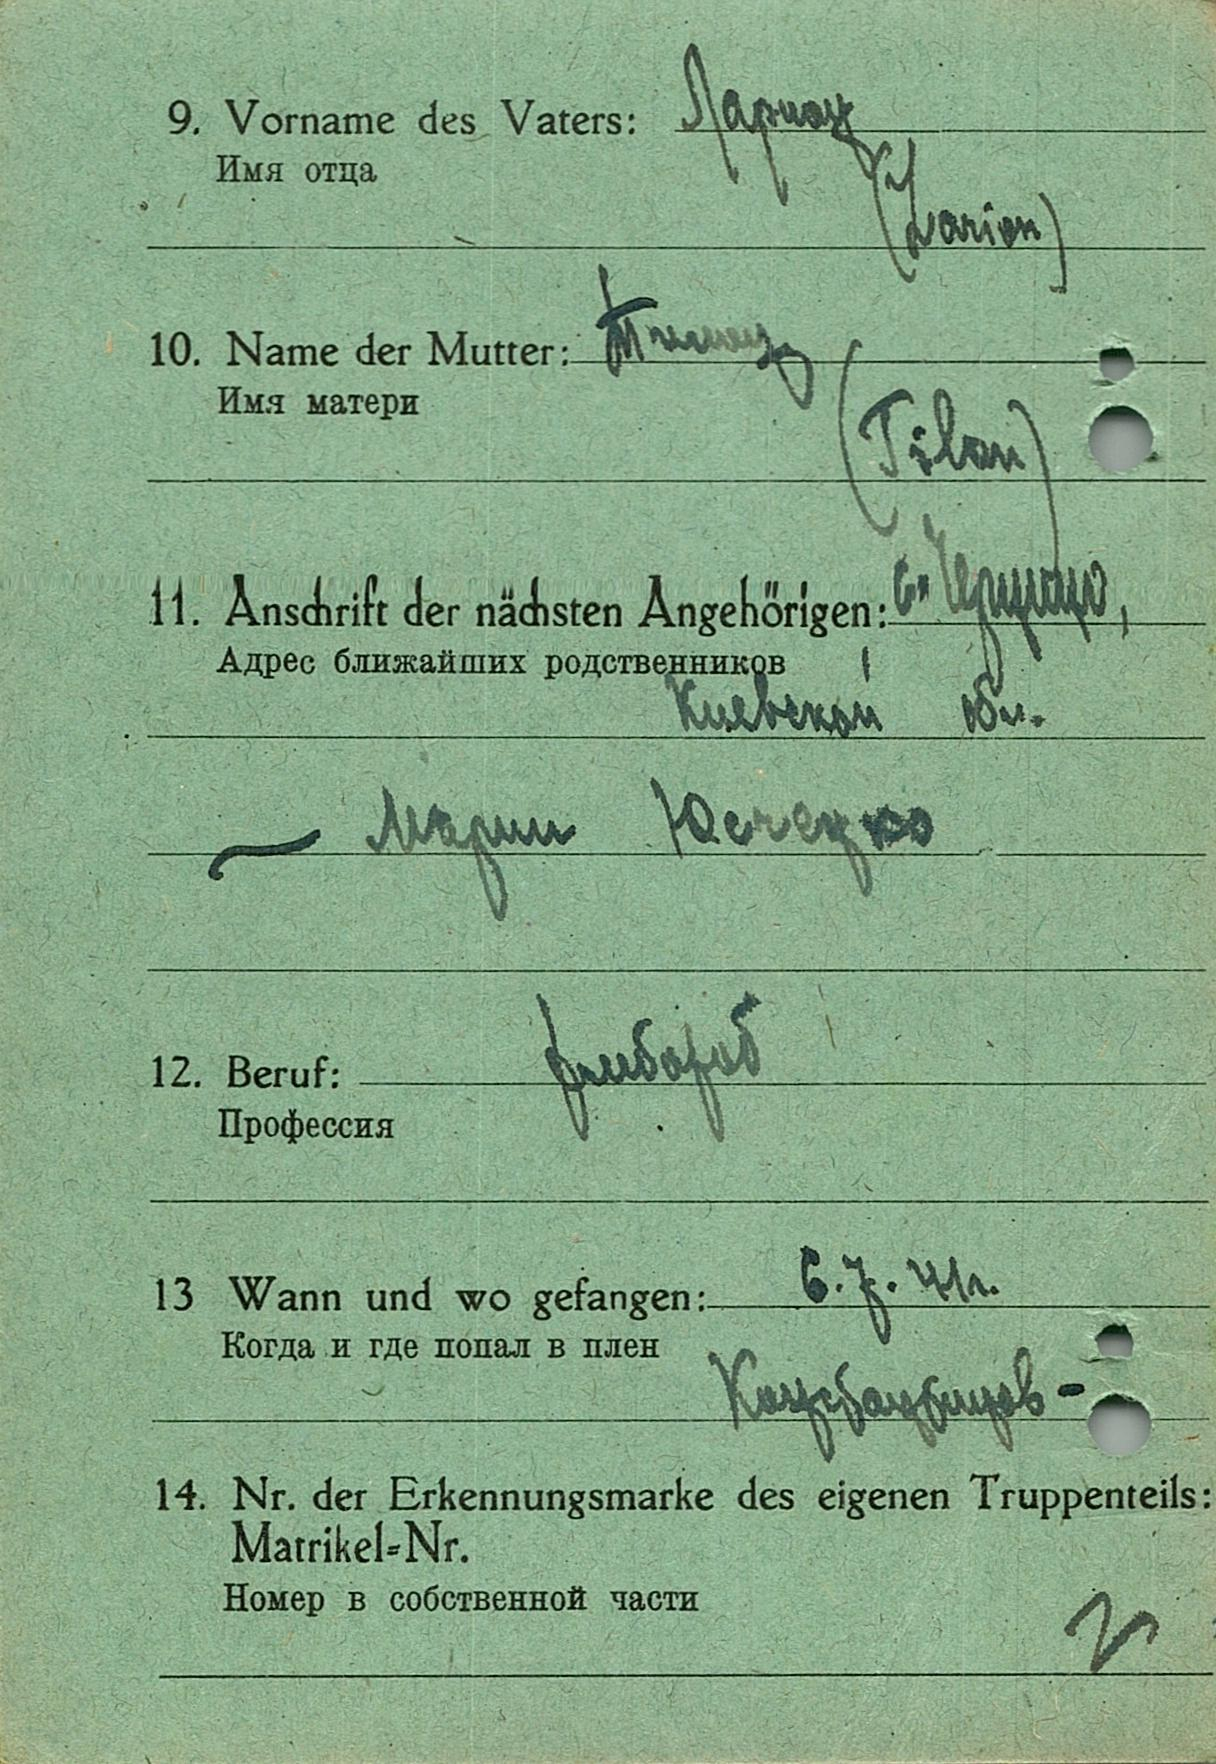 9. Vorname des Vaters: Ларион
Имя отца
(Larion)
10. Name der Mutter:
Имя матери
11. Anschrift der nächsten Angehörigen: с.
Адрес ближайших родственников
Киевской обл.
Марии
12. Beruf:
Профессия
13 Wann und wo gefangen: 6.7.41г.
Когда и где попал в плен
14. Nr. der Erkennungsmarke des eigenen Truppenteils:
Matrikel=Nr.
Номер в собственной части